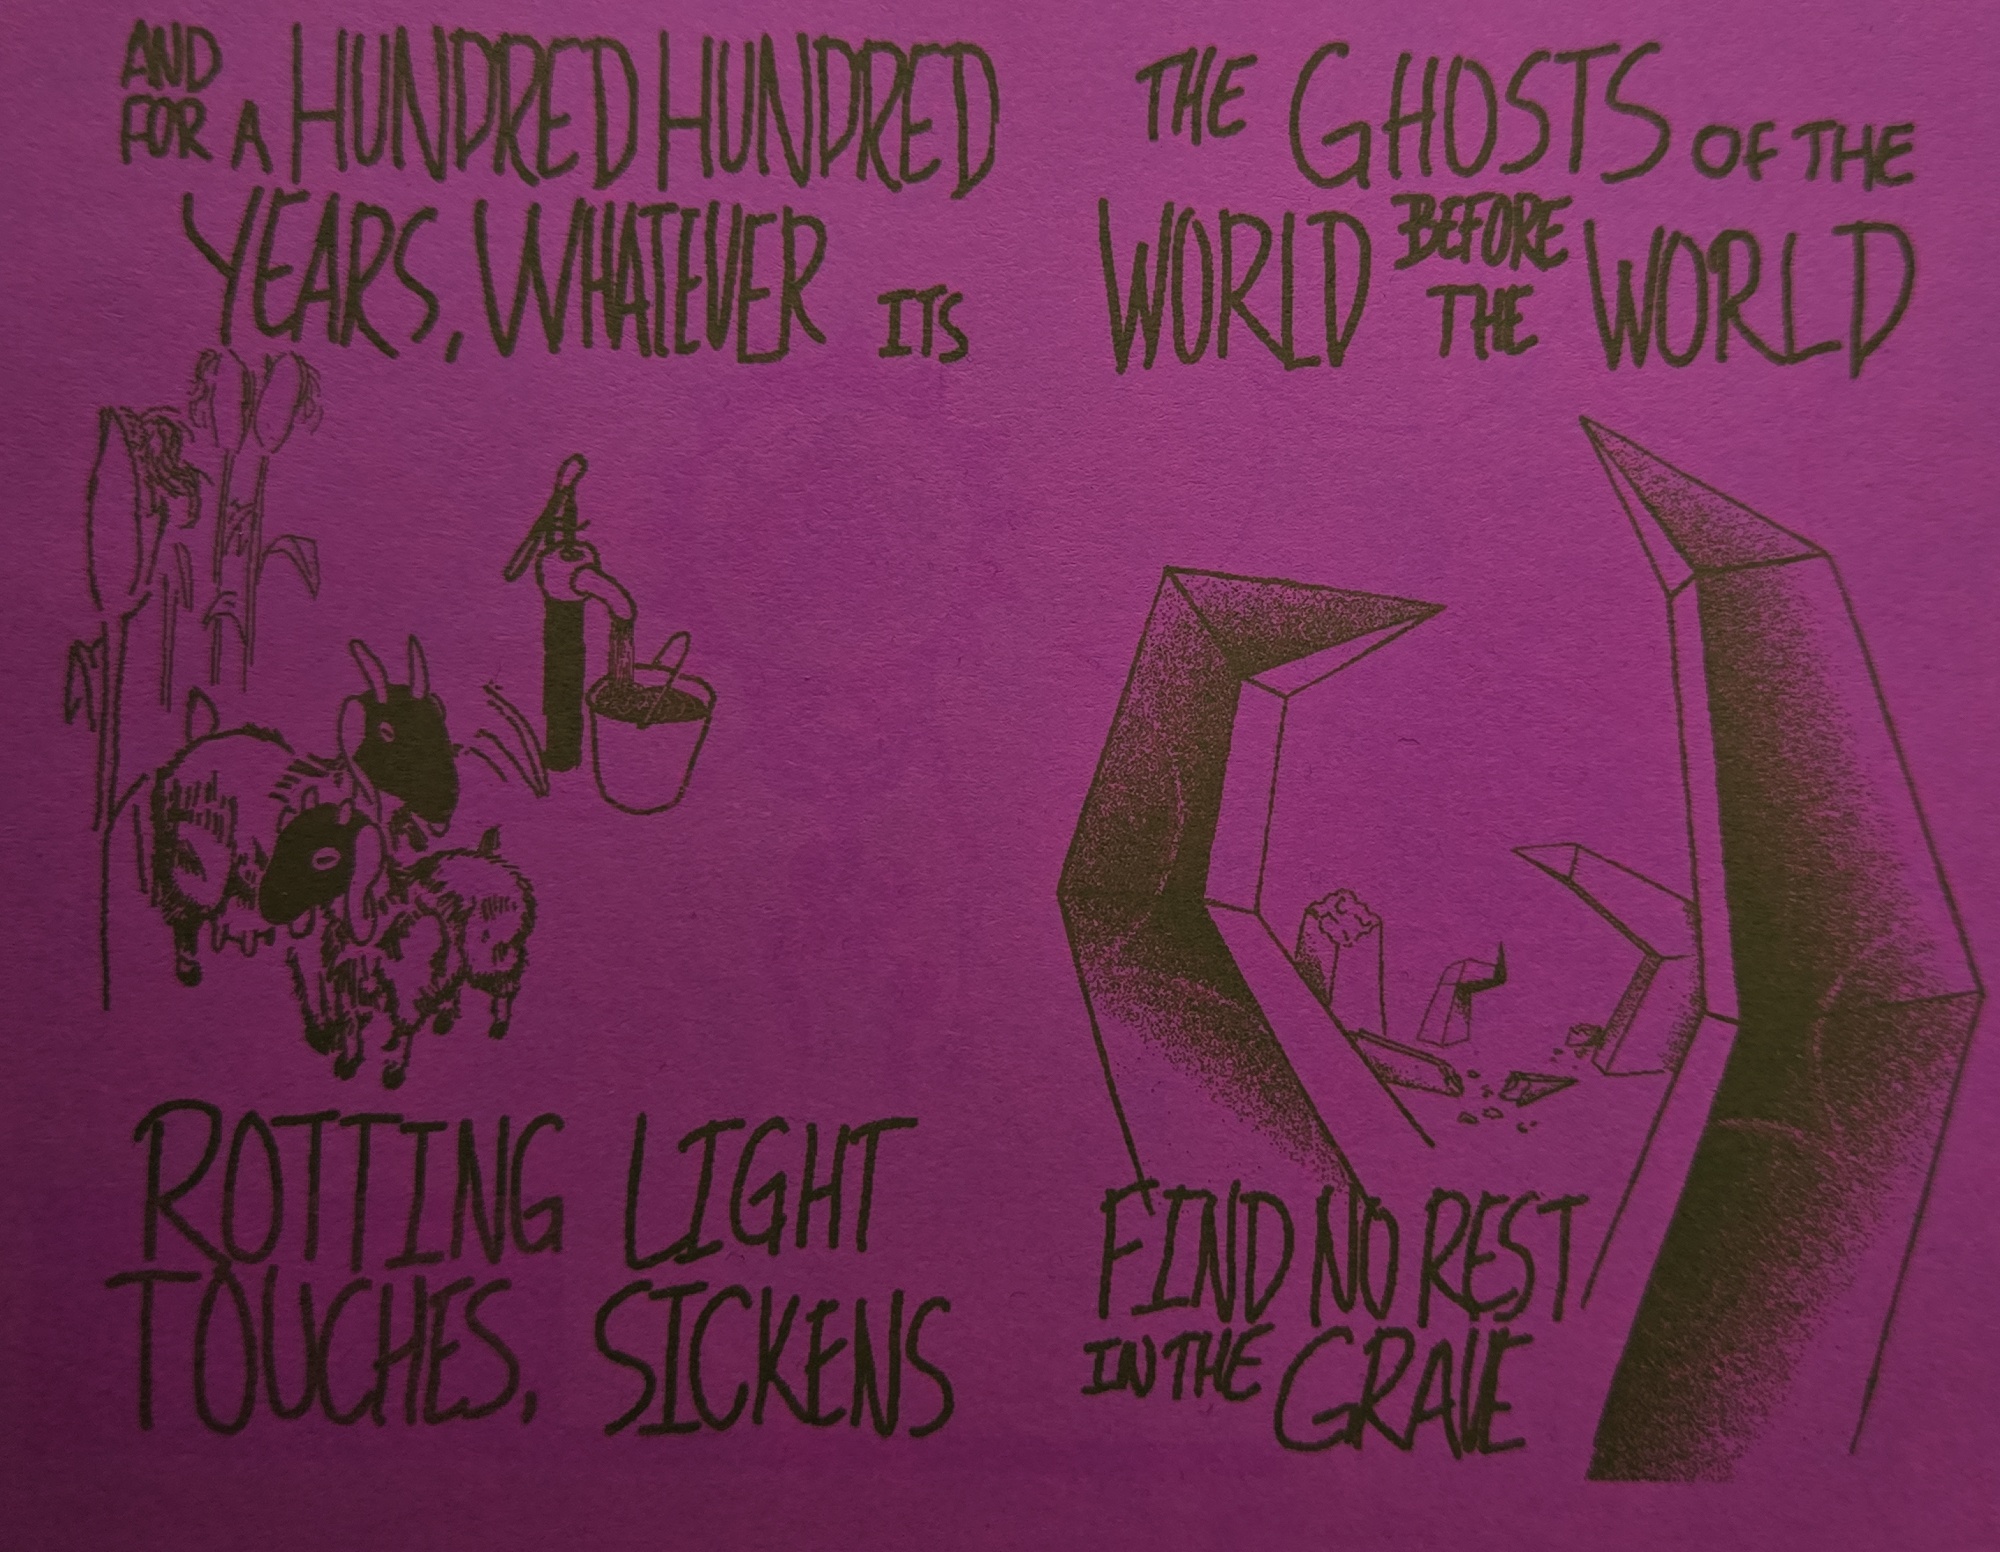 AND
FOR A HUNDRED HUNDRED
YEARS, WHATEVER ITS
ROTTING LIGHT
TOUCHES, SICKENS
THE GHOSTS OF THE
WORLD BEFORE THE WORLD
FIND NO REST
IN THE GRAVE